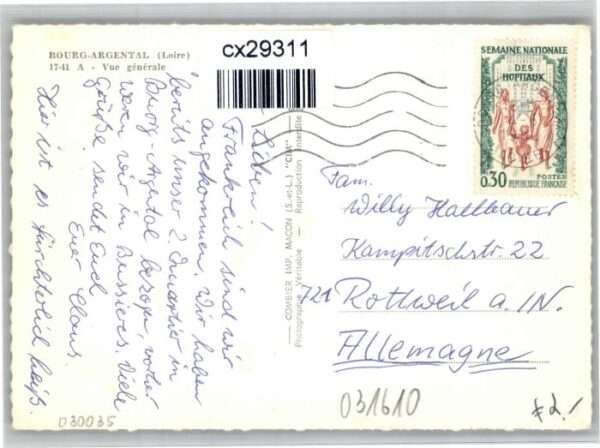 BOURG-ARGENTAL (Loire)
17-41 A - Vue générale
cx29311
Lieben!
Frankreich sind wir
angekommen. Wir haben
bereits unser 2. Quartier in
Bourg-Argental bezogen, vorher
waren wir in Bussières. Viele
Grüße sendet Euch
Euer Claus.
Hier ist es fürchterlich heiß.
COMBIER IMP. MACON (S.-et-L.) "CIM"
Photographie Véritable - Reproduction Interdite
SEMAINE NATIONALE
DES
HOPITAUX
0,30
POSTES
REPUBLIQUE FRANÇAISE
Fam.
Willy Hallbauer
Kampitschstr. 22
721 Rottweil a. N.
Allemagne
030035
031610